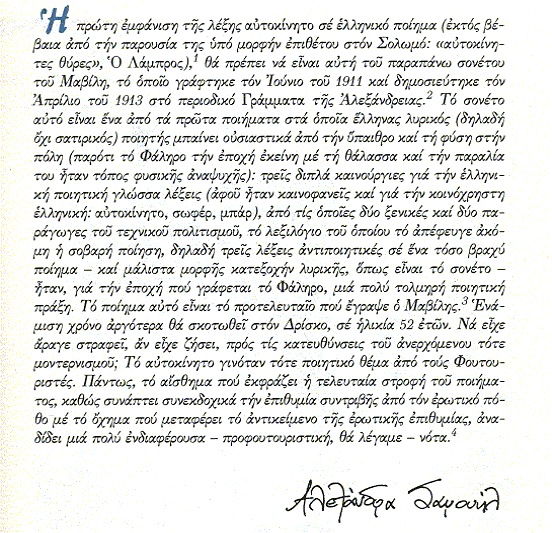 Ἡ πρώτη ἐμφάνιση τῆς λέξης αὐτοκίνητο σέ ἑλληνικό ποίημα (ἐκτός βέ-
βαια ἀπό τήν παρουσία της ὑπό μορφήν ἐπιθέτου στόν Σολωμό: «αὐτοκίνη-
τες θύρες», Ὁ Λάμπρος),¹ θά πρέπει νά εἶναι αὐτή τοῦ παραπάνω σονέτου
τοῦ Μαβίλη, τό ὁποῖο γράφτηκε τόν Ἰούνιο τοῦ 1911 καί δημοσιεύτηκε τόν
Ἀπρίλιο τοῦ 1913 στό περιοδικό Γράμματα τῆς Ἀλεξάνδρειας.² Τό σονέτο
αὐτό εἶναι ἕνα ἀπό τά πρῶτα ποιήματα στά ὁποῖα ἕλληνας λυρικός (δηλαδή
ὄχι σατιρικός) ποιητής μπαίνει οὐσιαστικά ἀπό τήν ὕπαιθρο καί τή φύση στήν
πόλη (παρότι τό Φάληρο τήν ἐποχή ἐκείνη μέ τή θάλασσα καί τήν παραλία
του ἦταν τόπος φυσικῆς ἀναψυχῆς): τρεῖς διπλά καινούργιες γιά τήν ἑλληνι-
κή ποιητική γλώσσα λέξεις (ἀφοῦ ἦταν καινοφανεῖς καί γιά τήν κοινόχρηστη
ἑλληνική: αὐτοκίνητο, σωφέρ, μπάρ), ἀπό τίς ὁποῖες δύο ξενικές καί δύο πα-
ράγωγες τοῦ τεχνικοῦ πολιτισμοῦ, τό λεξιλόγιο τοῦ ὁποίου τό ἀπέφευγε ἀκό-
μη ἡ σοβαρή ποίηση, δηλαδή τρεῖς λέξεις ἀντιποιητικές σέ ἕνα τόσο βραχύ
ποίημα – καί μάλιστα μορφῆς κατεξοχήν λυρικῆς, ὅπως εἶναι τό σονέτο –
ἦταν, γιά τήν ἐποχή πού γράφεται τό Φάληρο, μιά πολύ τολμηρή ποιητική
πράξη. Τό ποίημα αὐτό εἶναι τό προτελευταῖο πού ἔγραψε ὁ Μαβίλης.³ Ἑνά-
μιση χρόνο ἀργότερα θά σκοτωθεῖ στόν Δρίσκο, σέ ἡλικία 52 ἐτῶν. Νά εἶχε
ἄραγε στραφεῖ, ἄν εἶχε ζήσει, πρός τίς κατευθύνσεις τοῦ ἀνερχόμενου τότε
μοντερνισμοῦ; Τό αὐτοκίνητο γινόταν τότε ποιητικό θέμα ἀπό τούς Φουτου-
ριστές. Πάντως, τό αἴσθημα πού ἐκφράζει ἡ τελευταία στροφή τοῦ ποιήμα-
τος, καθώς συνάπτει συνεκδοχικά τήν ἐπιθυμία συντριβῆς ἀπό τόν ἐρωτικό πό-
θο μέ τό ὄχημα πού μεταφέρει τό ἀντικείμενο τῆς ἐρωτικῆς ἐπιθυμίας, ἀνα-
δίδει μιά πολύ ἐνδιαφέρουσα – προφουτουριστική, θά λέγαμε – νότα.⁴
Αλεξάνδρα Σαμουήλ